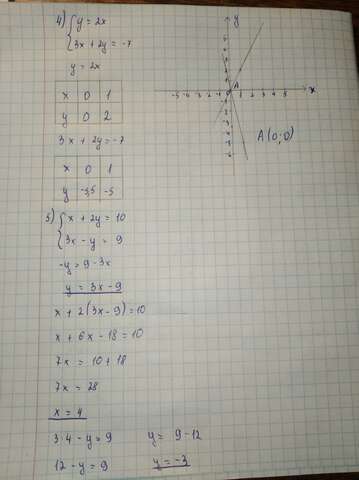 4) { y = 2x
3x + 2y = -7
y = 2x
x 0 1
y 0 2
3x + 2y = -7
x 0 1
y -3,5 -5
y
x
A
A(0;0)
5) { x + 2y = 10
3x - y = 9
-y = 9 - 3x
y = 3x - 9
x + 2(3x - 9) = 10
x + 6x - 18 = 10
7x = 10 + 18
7x = 28
x = 4
3·4 - y = 9
12 - y = 9
y = 9 - 12
y = -3